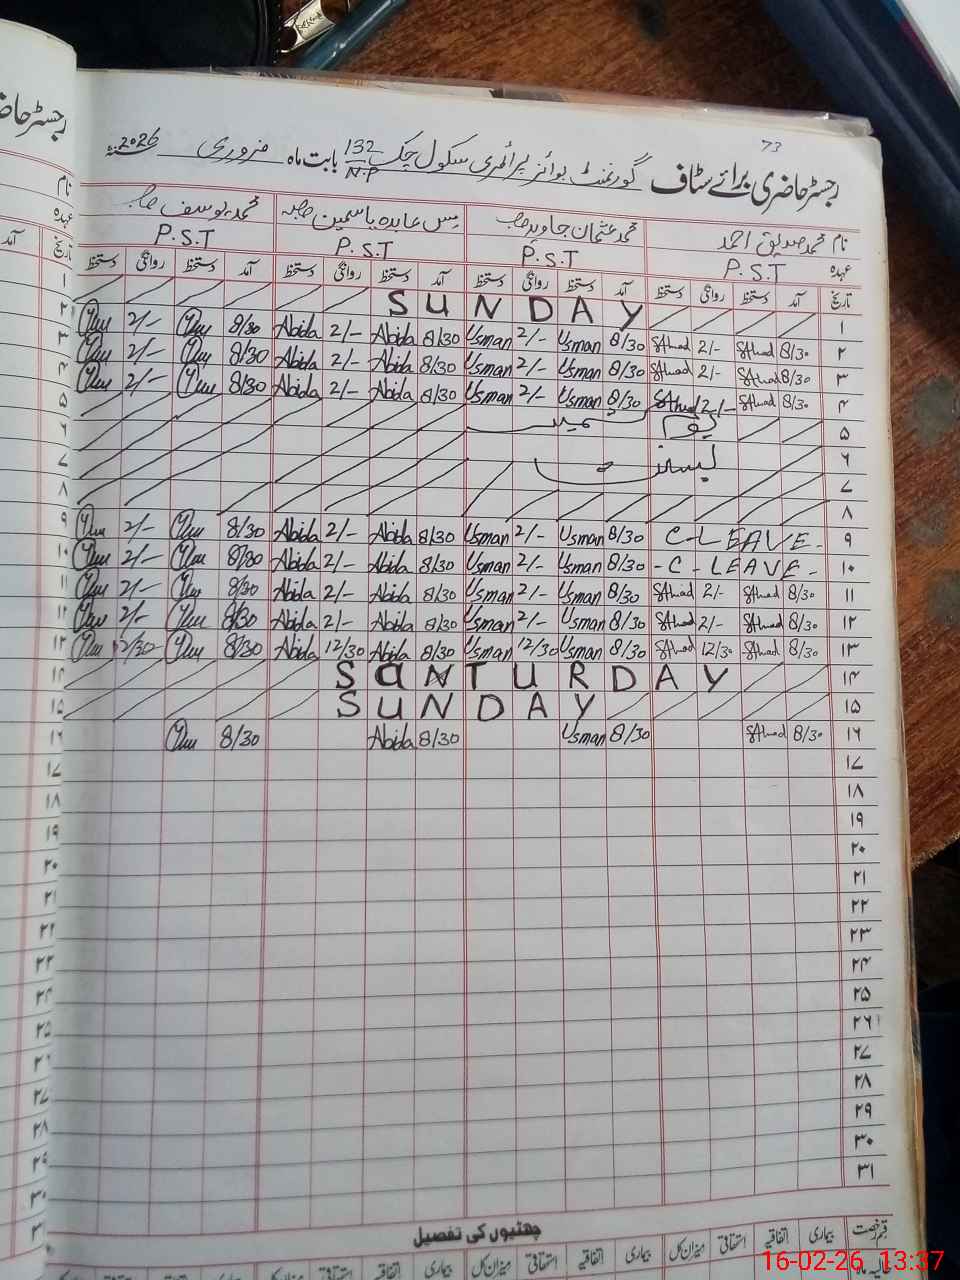 73
رجسٹر حاضری برائے سٹاف گورنمنٹ بوائز پرائمری سکول چک 132/N.P بابت ماہ فروری 2026
نام محمد صدیق احمد محمد عثمان جاوید صاحب مس عابدہ یاسمین صاحبہ محمد یوسف صاحب
عہدہ P.S.T P.S.T P.S.T P.S.T
تاریخ آمد دستخط روانگی دستخط آمد دستخط روانگی دستخط آمد دستخط روانگی دستخط آمد دستخط روانگی دستخط
۱ SUNDAY
۲ 8/30 2/- 8/30 Usman 2/- Usman 8/30 Abida 2/- Abida 8/30 2/-
۳ 8/30 2/- 8/30 Usman 2/- Usman 8/30 Abida 2/- Abida 8/30 2/-
۴ 8/30 2/- 8/30 Usman 2/- Usman 8/30 Abida 2/- Abida 8/30 2/-
۵ یوم
۶ بسنت
۷
۸
۹ C-LEAVE- 8/30 Usman 2/- Usman 8/30 Abida 2/- Abida 8/30 2/-
۱۰ -C-LEAVE- 8/30 Usman 2/- Usman 8/30 Abida 2/- Abida 8/30 2/-
۱۱ 8/30 2/- 8/30 Usman 2/- Usman 8/30 Abida 2/- Abida 8/30 2/-
۱۲ 8/30 2/- 8/30 Usman 2/- Usman 8/30 Abida 2/- Abida 8/30 2/-
۱۳ 8/30 12/30 8/30 Usman 12/30 Usman 8/30 Abida 12/30 Abida 8/30 12/30
۱۴ SANTURDAY
۱۵ SUNDAY
۱۶ 8/30 8/30 Usman 8/30 Abida 8/30
۱۷
۱۸
۱۹
۲۰
۲۱
۲۲
۲۳
۲۴
۲۵
۲۶
۲۷
۲۸
۲۹
۳۰
۳۱
چھٹیوں کی تفصیل
قسم رخصت بیماری اتفاقیہ استحقاقی میزان کل بیماری اتفاقیہ استحقاقی میزان کل بیماری اتفاقیہ استحقاقی میزان کل
حالیہ ماہ
16-02-26 13:37
رجسٹر حاضری
نام
عہدہ
تاریخ آمد
۱
۲
۳
۴
۵
۶
۷
۸
۹
۱۰
۱۱
۱۲
۱۳
۱۴
۱۵
۱۶
۱۷
۱۸
۱۹
۲۰
۲۱
۲۲
۲۳
۲۴
۲۵
۲۶
۲۷
۲۸
۲۹
۳۰